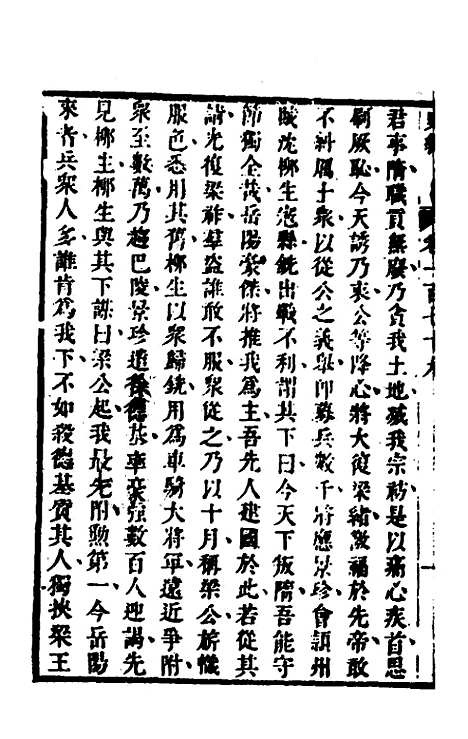 君事隋職貢無廢乃貪我土地滅我宗祊是以痛心疾首思
刷厥恥今天誘乃衷公等降心將大復梁緒徼福於先帝敢
不糾厲士衆以從公之義舉師募兵數千將應景珍會潁州
賊沈柳生寇縣銑出戰不利謂其下曰今天下叛隋吾能守
節獨全哉岳陽豪傑將推我為主吾先人建國於此若從其
請光復梁祚羣盜誰敢不服衆從之乃以十月稱梁公旂幟
服色悉用其舊柳生以衆歸銑用為車騎大將軍遠近爭附
衆至數萬乃趨巴陵景珍遣徐德基率豪強數百人迎謁先
見柳生柳生與其下謀曰梁公起我最先附勲第一今岳陽
來者兵衆人多誰肯為我下不如殺德基質其人獨挾梁王